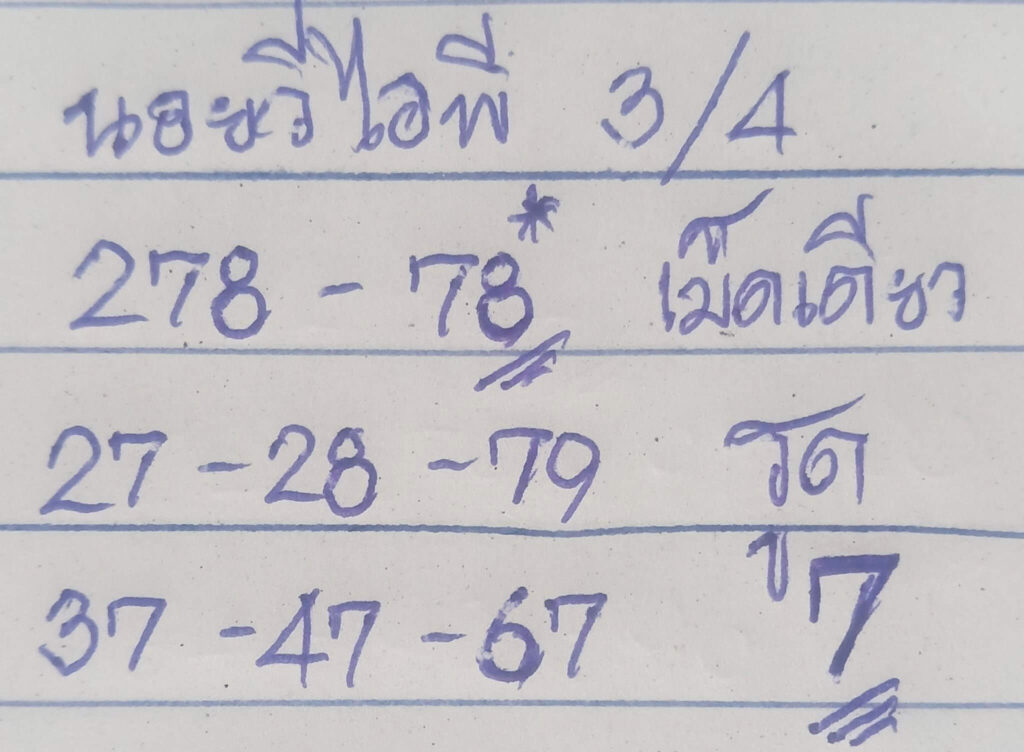 นอยวีไอพี 3/4
278 - 78* เม็ดเดียว
27 - 28 - 79 รูด
37 - 47 - 67 7